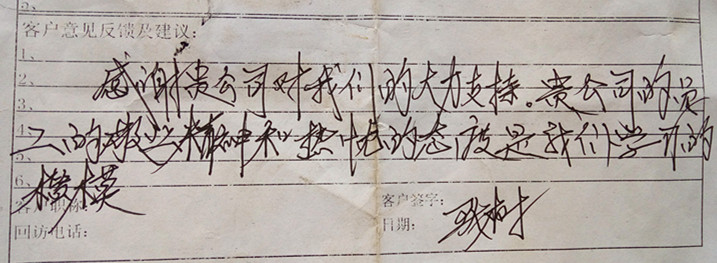 5、
客户意见反馈及建议：
1、
感谢贵公司对我们的大力支持。贵公司的员
2、
3、
工的敬业精神和热情的态度是我们学习的
4、
5、
楷模
6、
客户职称：
客户签字：
回访电话：
日期：